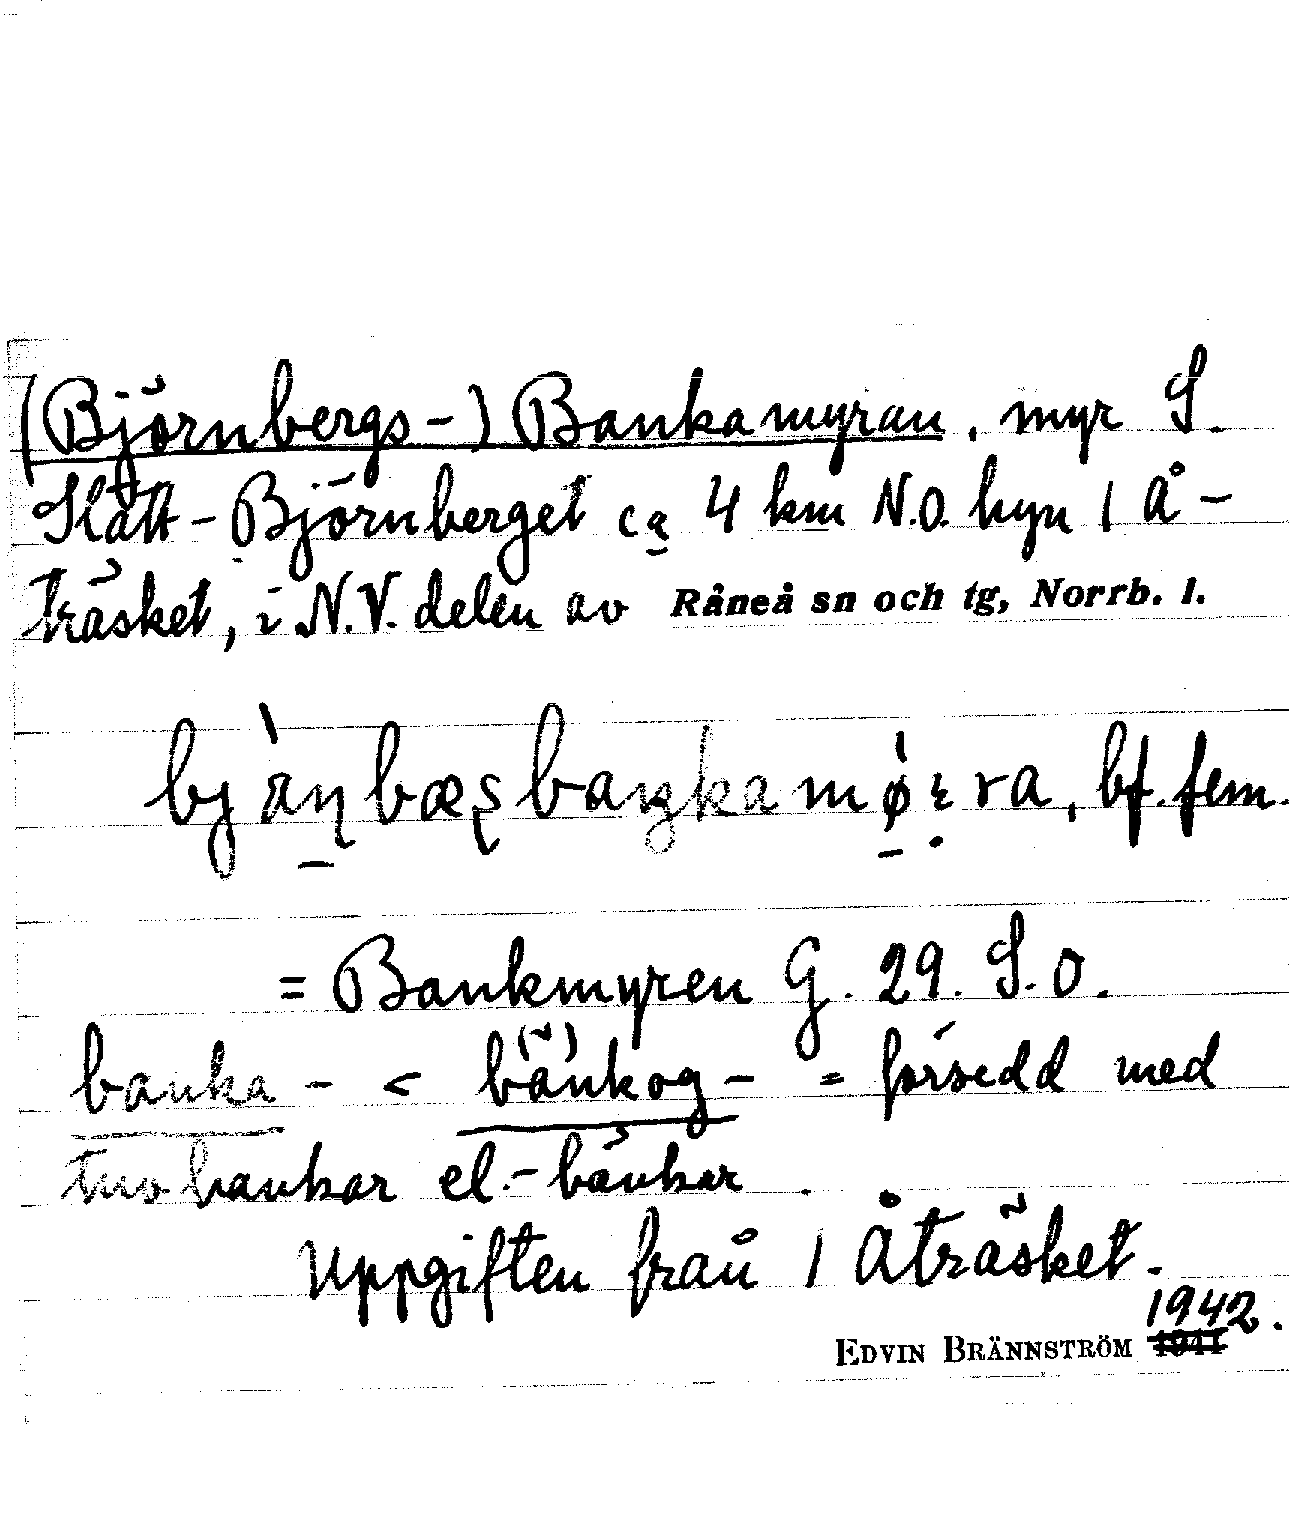 (Björnbergs-) Bankamyran, myr S.
Slätt-Björnberget ca 4 km N.O. byn 1 Å-
träsket, i N.V. delen av Råneå sn och tg, Norrb. l.
bf. fem.
= Bankmyren G. 29. S.O.
banka- < bänkog- = försedd med
tuvbankar el.- bänkar.
Uppgiften från 1 Åträsket.
1942.
EDVIN BRÄNNSTRÖM 1941